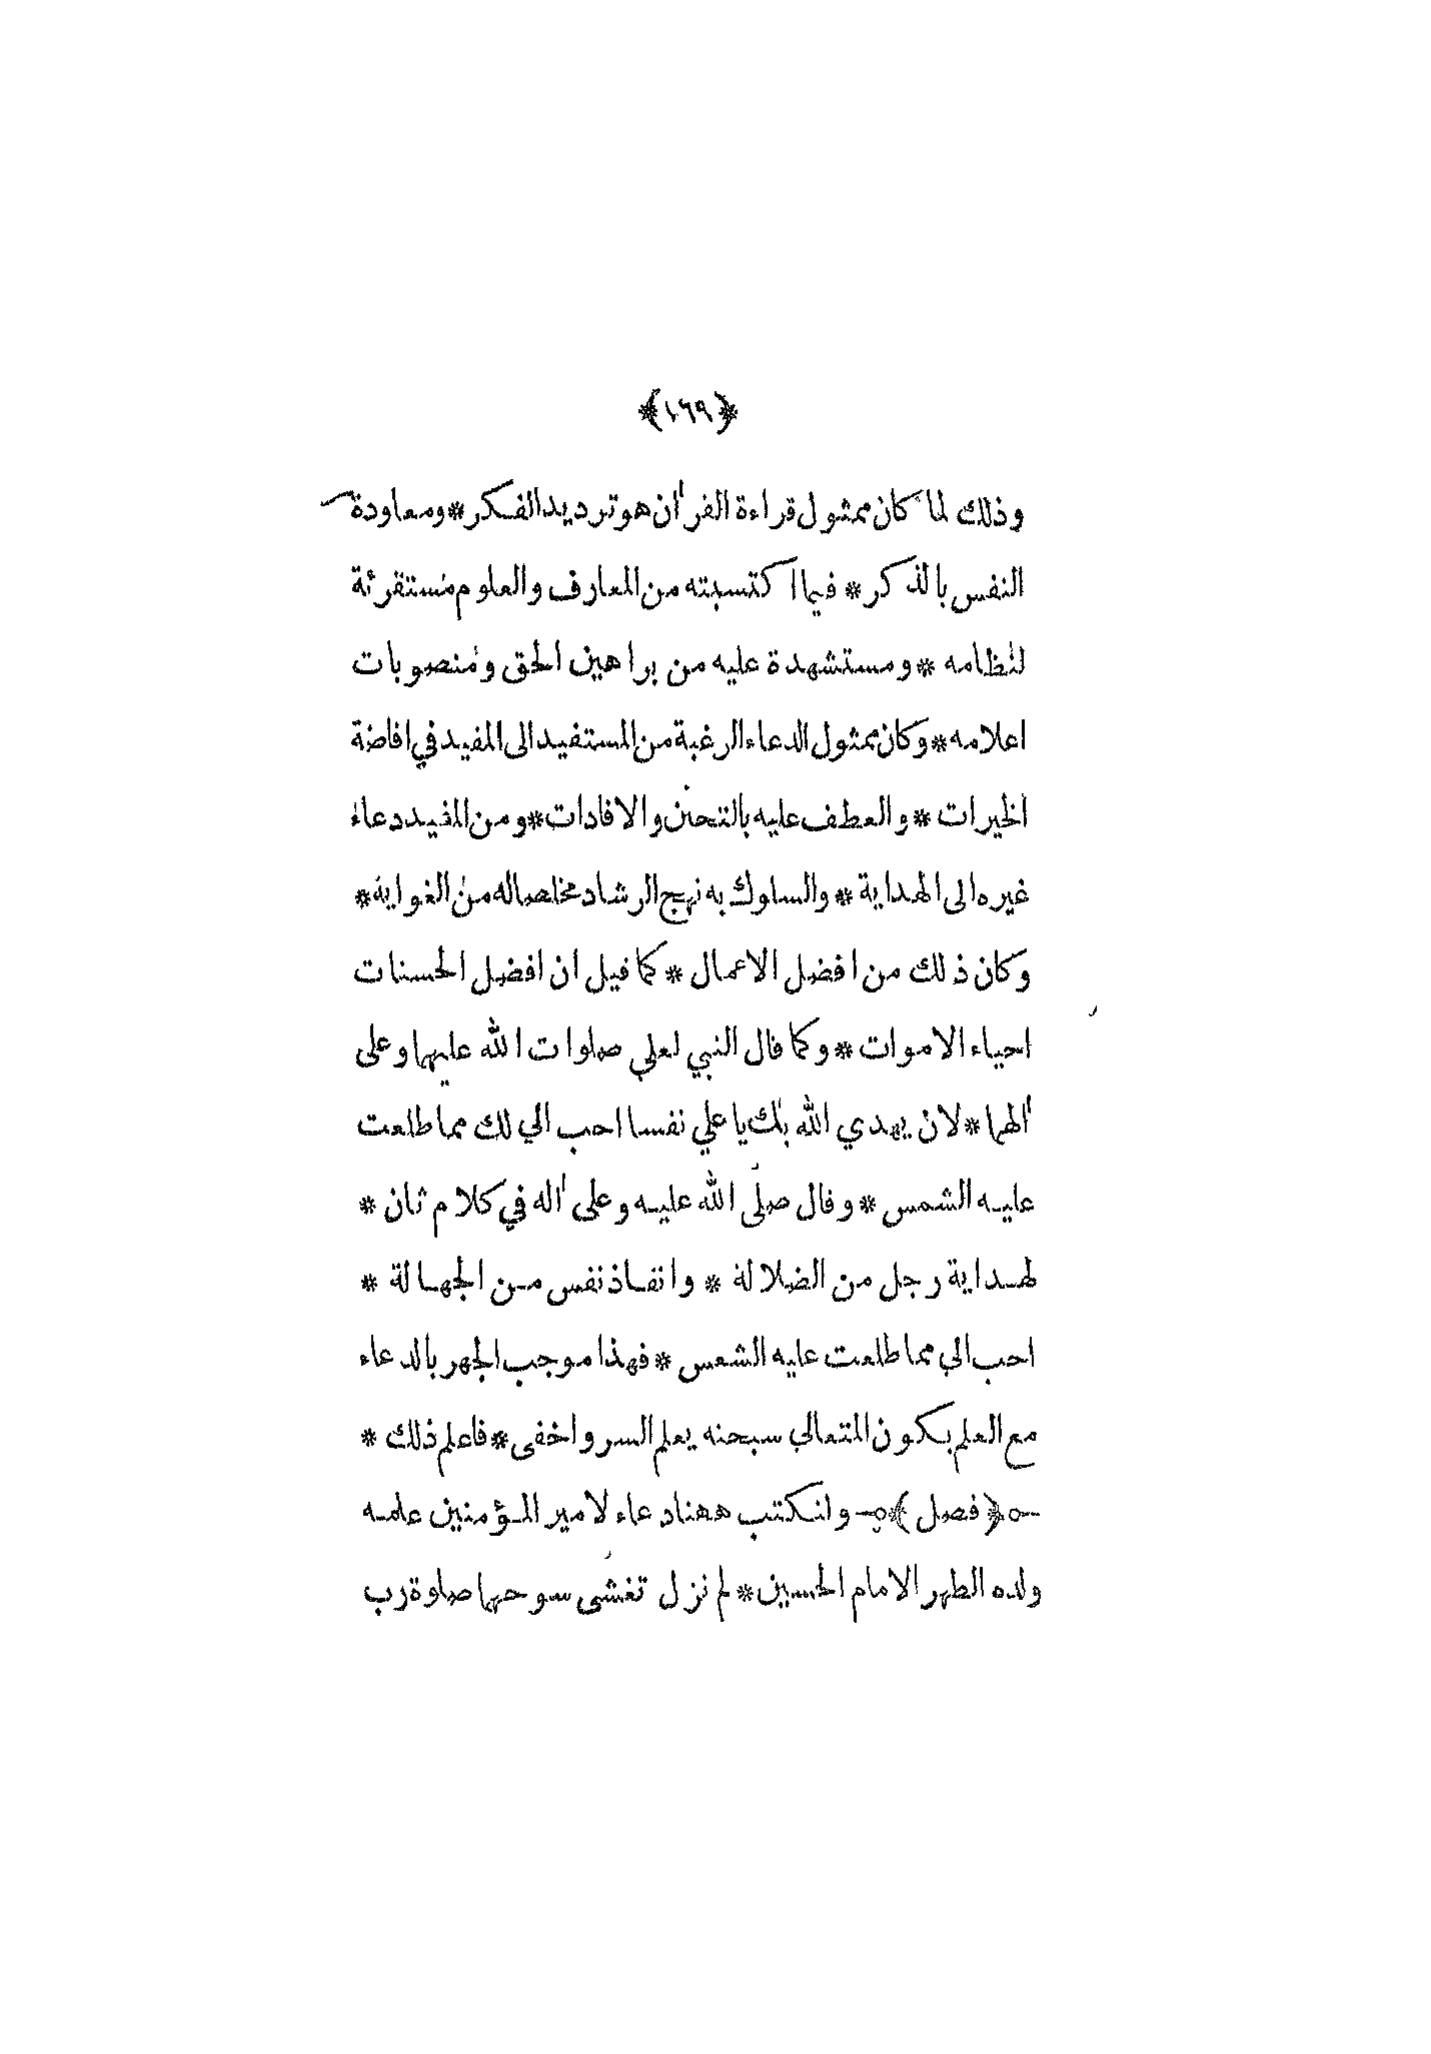 ﴿١٦٩﴾
وذلك لما كان ممثول قراءة القرآن هو ترديد الفكر * ومعاودة
النفس بالذكر * فيما اكتسبته من المعارف والعلوم مستقرئة
لنظامه * ومستشهدة عليه من براهين الحق ومنصوبات
اعلامه * وكان ممثول الدعاء الرغبة من المستفيد الى المفيد في افاضة
الخيرات * والعطف عليه بالتحنن والافادات * ومن المفيد دعاء
غيره الى الهداية * والسلوك به نهج الرشاد مخلصا له من الغواية *
وكان ذلك من افضل الاعمال * كما قيل ان افضل الحسنات
احياء الاموات * وكما قال النبي لعلي صلوات الله عليهما وعلى
آلهما * لان يهدي الله بك يا علي نفسا احب الي لك مما طلعت
عليه الشمس * وقال صلى الله عليه وعلى آله في كلام ثان *
لهداية رجل من الضلالة * وانقاذ نفس من الجهالة *
احب الي مما طلعت عليه الشمس * فهذا موجب الجهر بالدعاء
مع العلم بكون المتعالي سبحنه يعلم السر واخفى * فاعلم ذلك *
﴿ فصل ﴾ ولنكتب ههنا دعاء لامير المؤمنين علمه
ولده الطهر الامام الحسين * لم نزل تغشى سوحهما صلوة رب